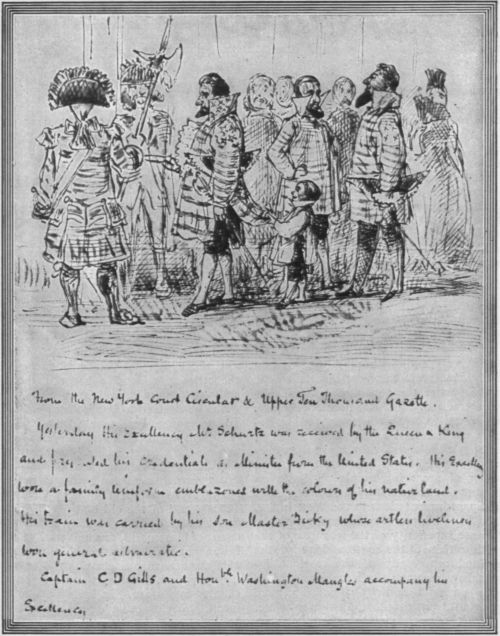 From the New York Court Circular & Upper Ten Thousand Gazette.
Yesterday His Excellency Mr Schurtz was received by the Queen & King
and presented his credentials as Minister from the United States. His Excellency
wore a family uniform emblazoned with the colours of his native land.
His train was carried by his son Master Ticky whose artless liveliness
won general admiration.
Captain C D Gills and Honble Washington Mangles accompany his
Excellency